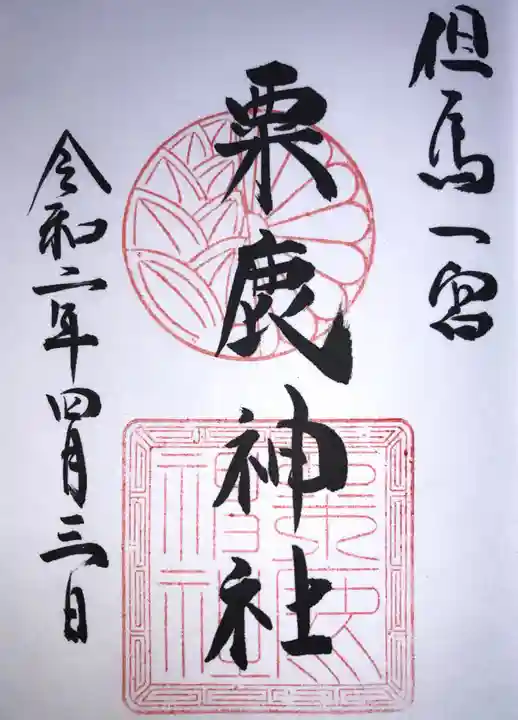 但馬一宮
粟鹿神社
令和二年四月三日
粟鹿神社